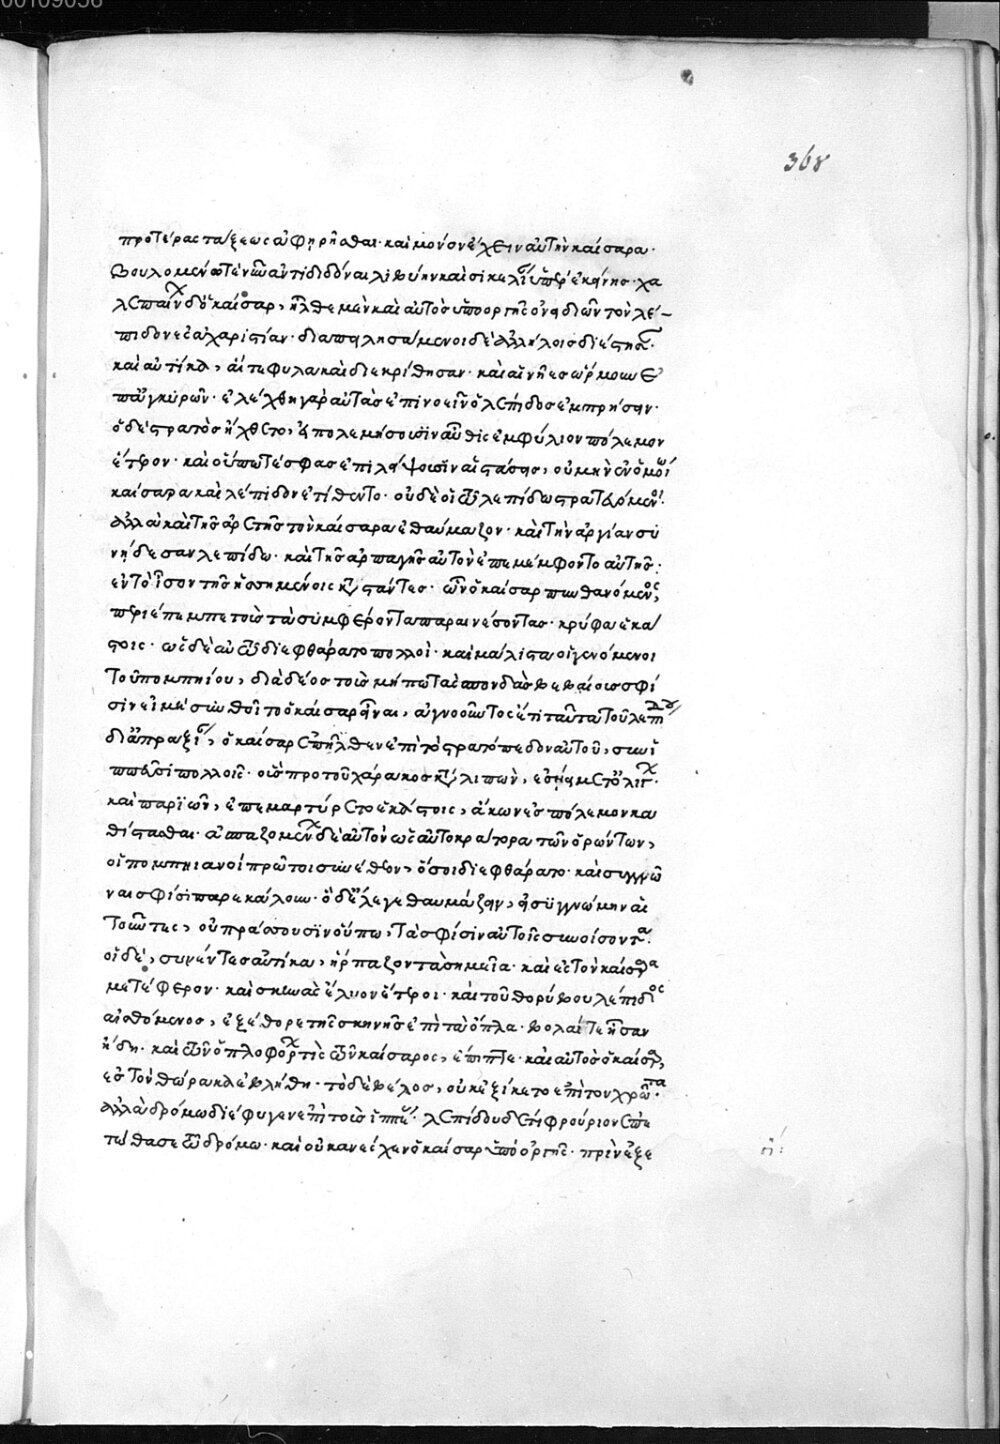 00109056
368
προτέρας τάξεως ἀφῃρῆσθαι· καὶ μόνον ἔχειν αὐτὴν καίσαρα·
βουλομένω τε νῦν ἀντιδιδόναι λιβύην καὶ σικελίαν ὑπὲρ ἐκείνης· χα
λεπαίνων δ' ὁ καίσαρ, ἦλθε μὲν καὶ αὐτὸς ὑπὸ ὀργῆς ὀνειδιῶν τὸν λέ-
πιδον ἐς ἀχαριστίαν· διαπειλησάμενοι δὲ ἀλλήλοις διέστησαν·
καὶ αὐτίκα, αἵ τε φυλακαὶ διεκρίθησαν· καὶ αἱ νῆες ὥρμουν ἐ
π' ἀγκυρῶν· ἐλέχθη γὰρ αὐτὰς ἐπινοεῖν ὁ λέπιδος ἐμπρήσειν·
ὁ δὲ στρατὸς ἤχθετο, εἰ πολεμήσουσιν αὖθις ἐμφύλιον πόλεμον
ἕτερον· καὶ οὔποτε σφᾶς ἐπιλείψουσιν αἱ στάσεις, οὐ μὴν ἐν ὁμοίῳ
καίσαρα καὶ λέπιδον ἐτίθεντο· οὐδὲ οἱ τῶ λεπίδω στρατευόμενοι·
ἀλλὰ καὶ τῆς ἀρετῆς τὸν καίσαρα ἐθαύμαζον· καὶ τὴν ἀργίαν συ
νῄδεσαν λεπίδω· καὶ τῆς ἁρπαγῆς αὐτὸν ἐπεμέμφοντο αὐτῆς·
ἐν τῷ ἴσον τῆς ἡσσημένοις καταστάντες· ὧν ὁ καίσαρ πυνθανόμενος,
περιέπεμπε τοὺς τὰ συμφέροντα παραινέσοντας· κρύφα ἑκά
στοις· ὡς δὲ αὐτῶ διεφθάρατο πολλοὶ· καὶ μάλιστα οἱ γενόμενοι
τοῦ πομπηίου, διὰ δέος τοῦ μήπω τὰς σπονδὰς βεβαίους σφί
σιν εἶναι μὴ συνθεμένου τοῦ καίσαρος, ἀγνοοῦντος ἔτι ταῦτα τοῦ λεπίδου
δι' ἀπραξίαν, ὁ καίσαρ ἐπῆλθεν ἐπὶ τὸ στρατόπεδον αὐτοῦ, σὺν ἱ
ππεῦσι πολλοῖς· οὓς πρὸ τοῦ χάρακος καταλιπὼν, ἐσῄει μετ' ὀλίγων·
καὶ παριὼν, ἐπεμαρτύρετο ἑκάστοις, ἄκων ἐς πόλεμον κα
θίστασθαι· ἀσπαζομένων δὲ αὐτὸν ὡς αὐτοκράτορα τῶν ὁρώντων,
οἱ πομπηιανοὶ πρῶτοι συνέθεον, ὅσοι διεφθάρατο· καὶ συγγνῶ
ναι σφίσι παρεκάλουν· ὁ δὲ ἔλεγε θαυμάζειν, εἰ συγγνώμην αἰ
τοῦντες, οὐ πράσσουσιν οὔπω, τὰ σφίσιν αὐτοῖς συνοίσοντα·
οἱ δὲ, συνέντες αὐτίκα, ἥρπαζον τὰ σημεῖα· καὶ ἐς τὸν καίσαρα
μετέφερον· καὶ σκηνὰς ἔλυον ἕτεροι· καὶ τοῦ θορύβου λέπιδος
αἰσθόμενος, ἐξέθορε τῆς σκηνῆς ἐπὶ τὰ ὅπλα· βολαί τε ἦσαν
ἤδη· καὶ τῶν ὁπλοφόρων τὶς τῶν καίσαρος, ἔπιπτε· καὶ αὐτὸς ὁ καίσαρ,
ἐς τὸν θώρακα ἐβλήθη· τὸ δὲ βέλος, οὐκ ἐξίκετο ἐπὶ τὸν χρῶτα·
ἀλλὰ δρόμω διέφυγεν ἐπὶ τοὺς ἱππέας· λεπίδου δέ τι φρούριον ἐπε
τώθασε τῶ δρόμω· καὶ οὐκ ἀνέσχεν ὁ καίσαρ ὑπὸ ὀργῆς· πρὶν ἐξε